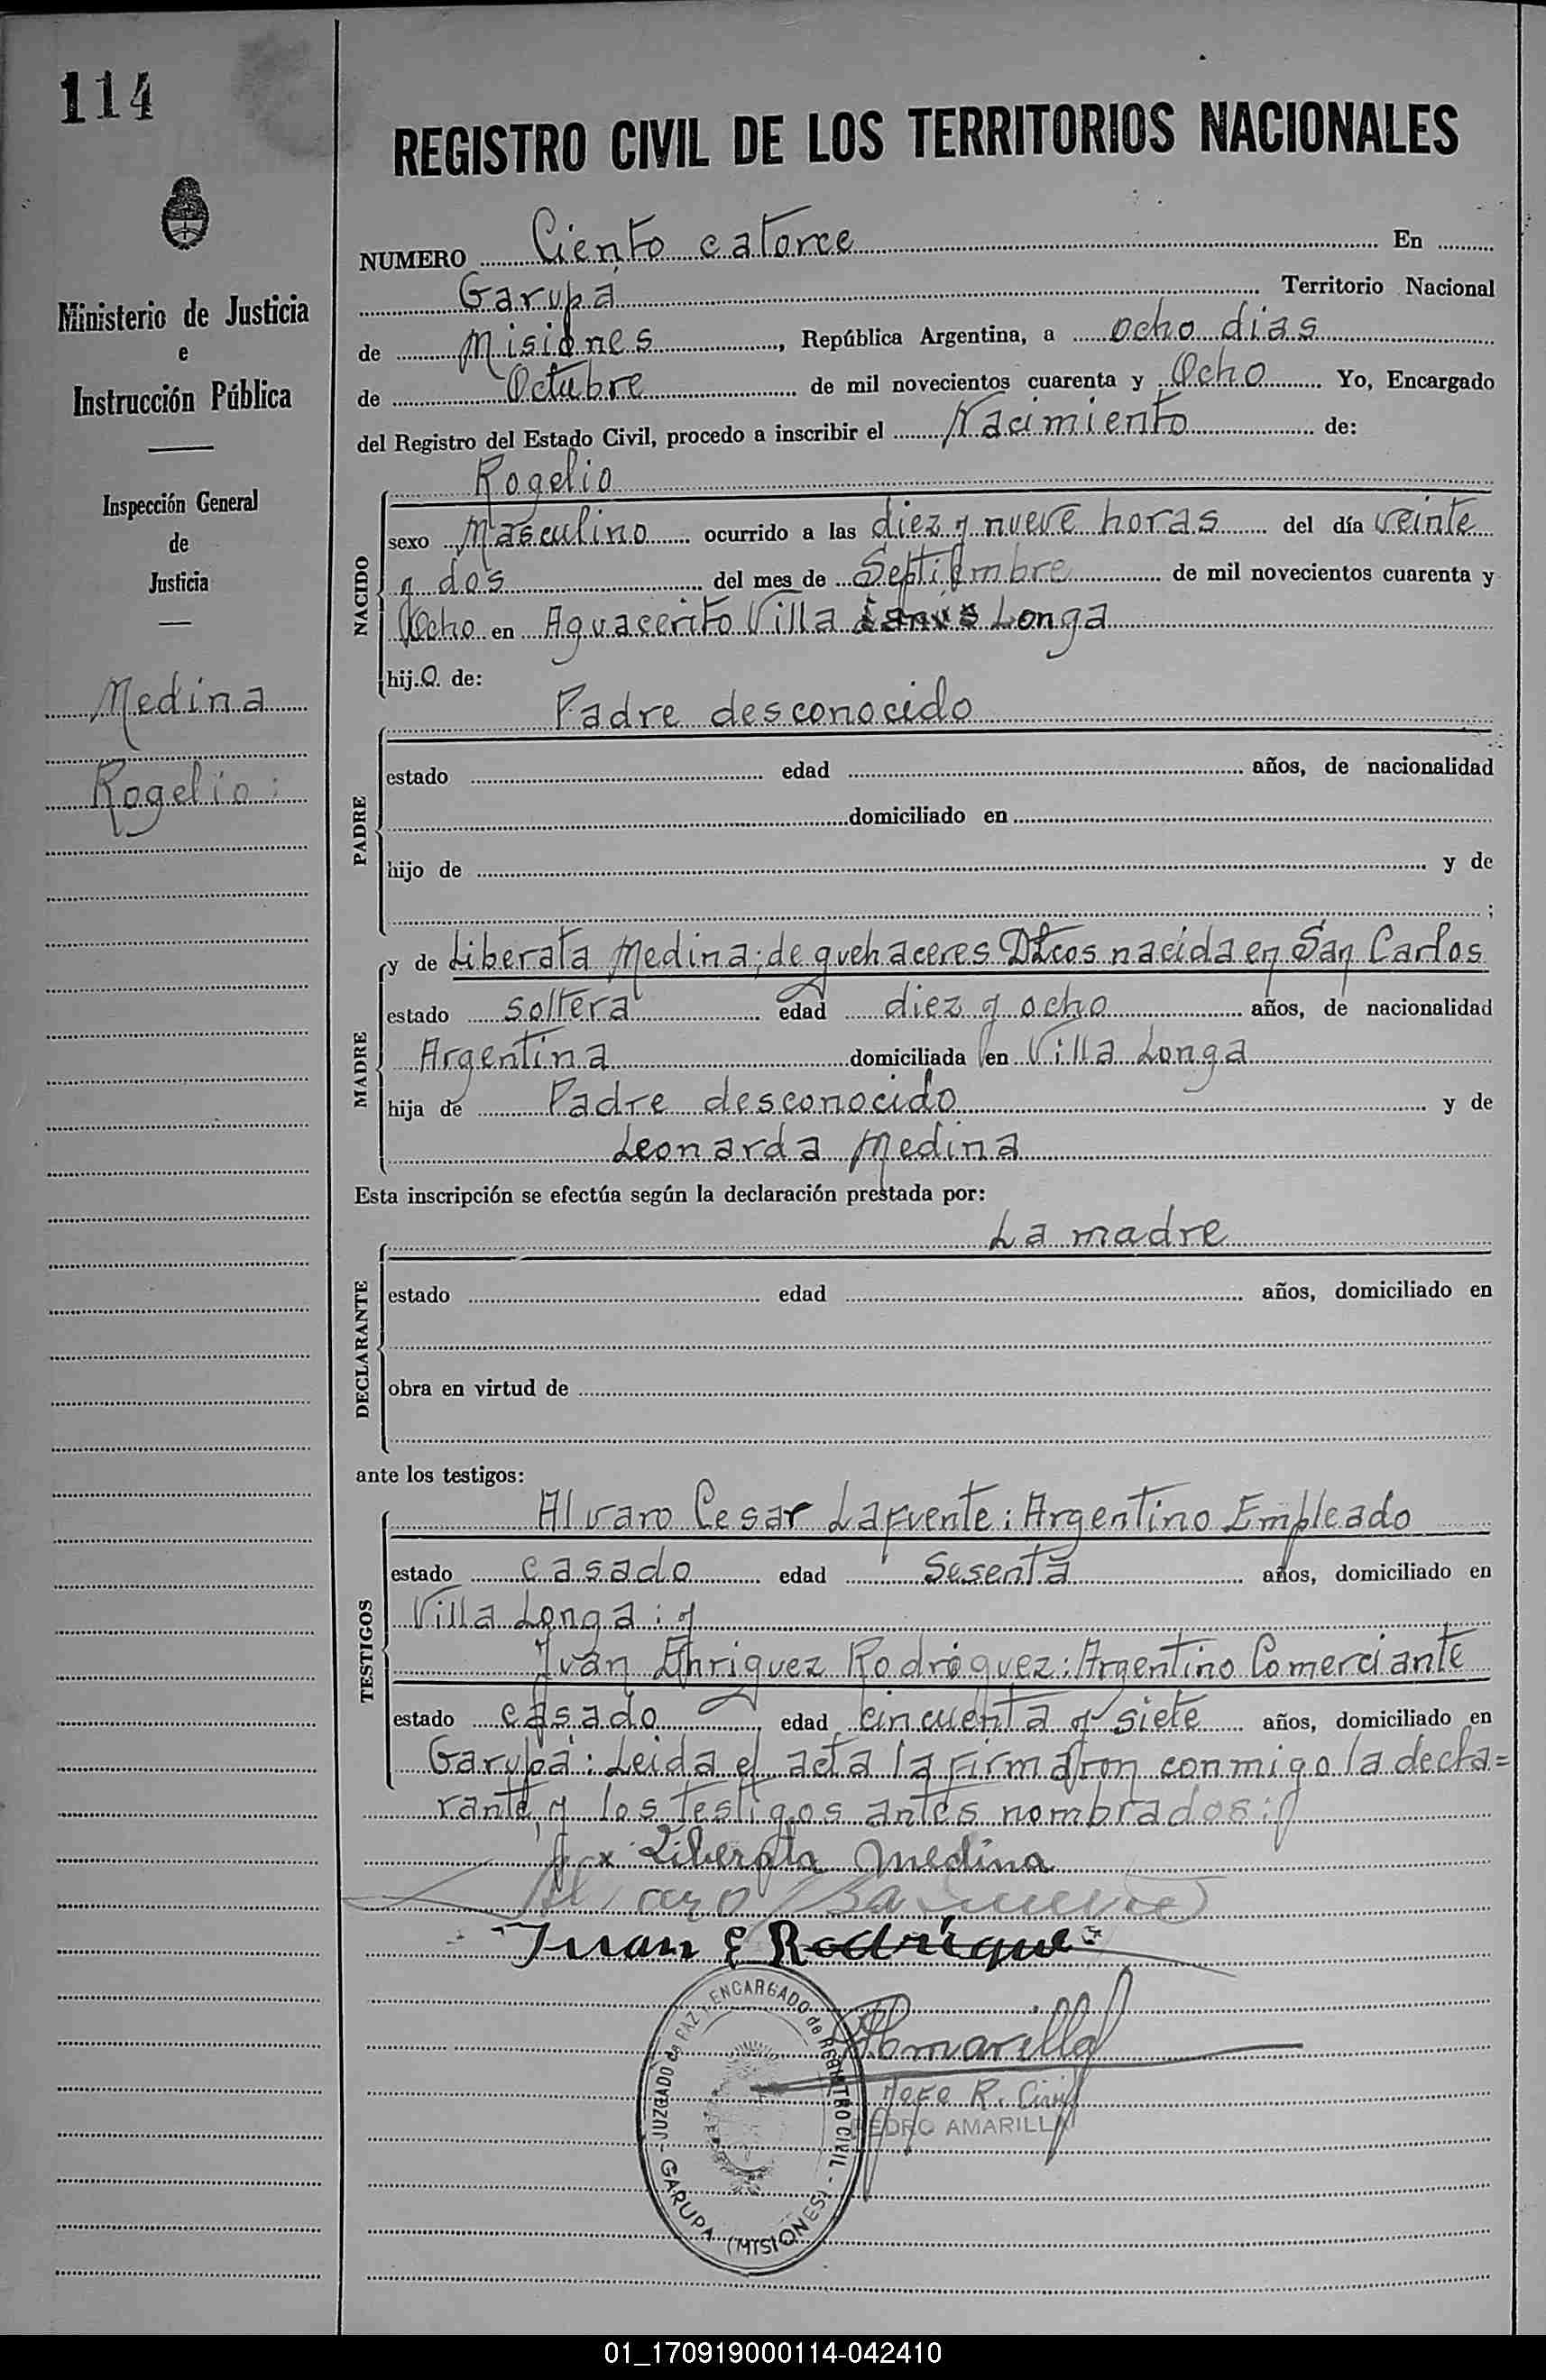 114
Ministerio de Justicia
e
Instrucción Pública
Inspección General
de
Justicia
Medina
Rogelio:
REGISTRO CIVIL DE LOS TERRITORIOS NACIONALES
NUMERO Ciento catorce En
Garupá Territorio Nacional
de Misiones, República Argentina, a ocho dias
de Octubre de mil novecientos cuarenta y Ocho Yo, Encargado
del Registro del Estado Civil, procedo a inscribir el Nacimiento de:
NACIDO
Rogelio
sexo Masculino ocurrido a las diez y nueve horas del día veinte
y dos del mes de Septiembre de mil novecientos cuarenta y
Ocho en Aguacerito Villa Lanús Longa
hijo de:
PADRE
Padre desconocido
estado edad años, de nacionalidad
domiciliado en
hijo de y de
;
MADRE
y de Liberata Medina; de quehaceres Dtcos nacida en San Carlos
estado soltera edad diez y ocho años, de nacionalidad
Argentina domiciliada en Villa Longa
hija de Padre desconocido y de
Leonarda Medina
Esta inscripción se efectúa según la declaración prestada por:
DECLARANTE
La madre
estado edad años, domiciliado en
obra en virtud de
ante los testigos:
TESTIGOS
Alvaro Cesar Lafuente: Argentino Empleado
estado casado edad Sesenta años, domiciliado en
Villa Longa: y
Juan Enriquez Rodriguez: Argentino Comerciante
estado casado edad cincuenta y siete años, domiciliado en
Garupá: Leida el acta la firmaron conmigo la decla=
rante, y los testigos antes nombrados:
x Liberata Medina
Alvaro
Juan E Rodrigue
JUZGADO de PAZ y ENCARGADO de REGISTRO CIVIL - GARUPA (MISIONES) -
Amarilla
Jefe R. Civil
PEDRO AMARILLA
01_170919000114-042410